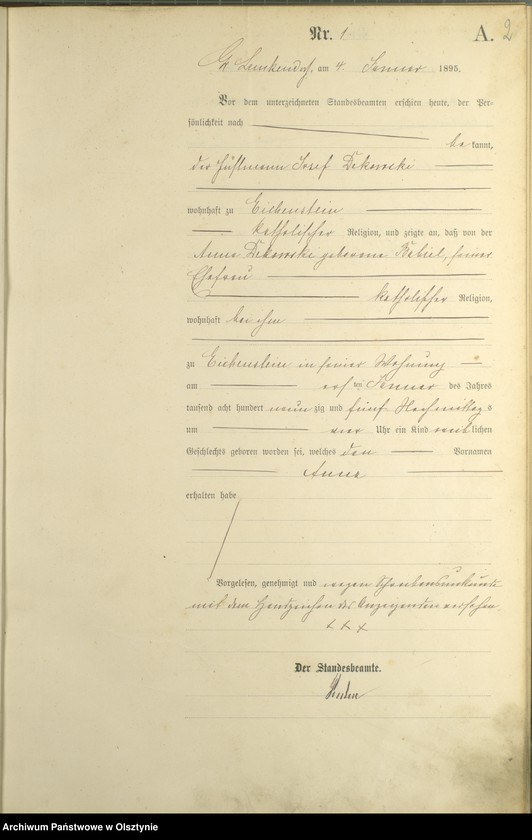 Nr. 1
A. 2
Gr Lemkendorf, am 4. Januar 1895.
Vor dem unterzeichneten Standesbeamten erschien heute, der Per-
sönlichkeit nach
be kannt,
der Josef Dekowski
wohnhaft zu Eichenstein
katholischer Religion, und zeigte an, daß von der
Anna Dekowski geborene seiner
Ehefrau
katholischer Religion,
wohnhaft bei ihm
zu Eichenstein in seiner Wohnung
am ersten Januar des Jahres
tausend acht hundert neun zig und fünf Nachmittag s
um vier Uhr ein Kind weib lichen
Geschlechts geboren worden sei, welches den Vornamen
Anna
erhalten habe
Vorgelesen, genehmigt und wegen Schreibensunkunde
mit dem Handzeichen des Anzeigenden versehen.
+ + +
Der Standesbeamte.
Archiwum Państwowe w Olsztynie